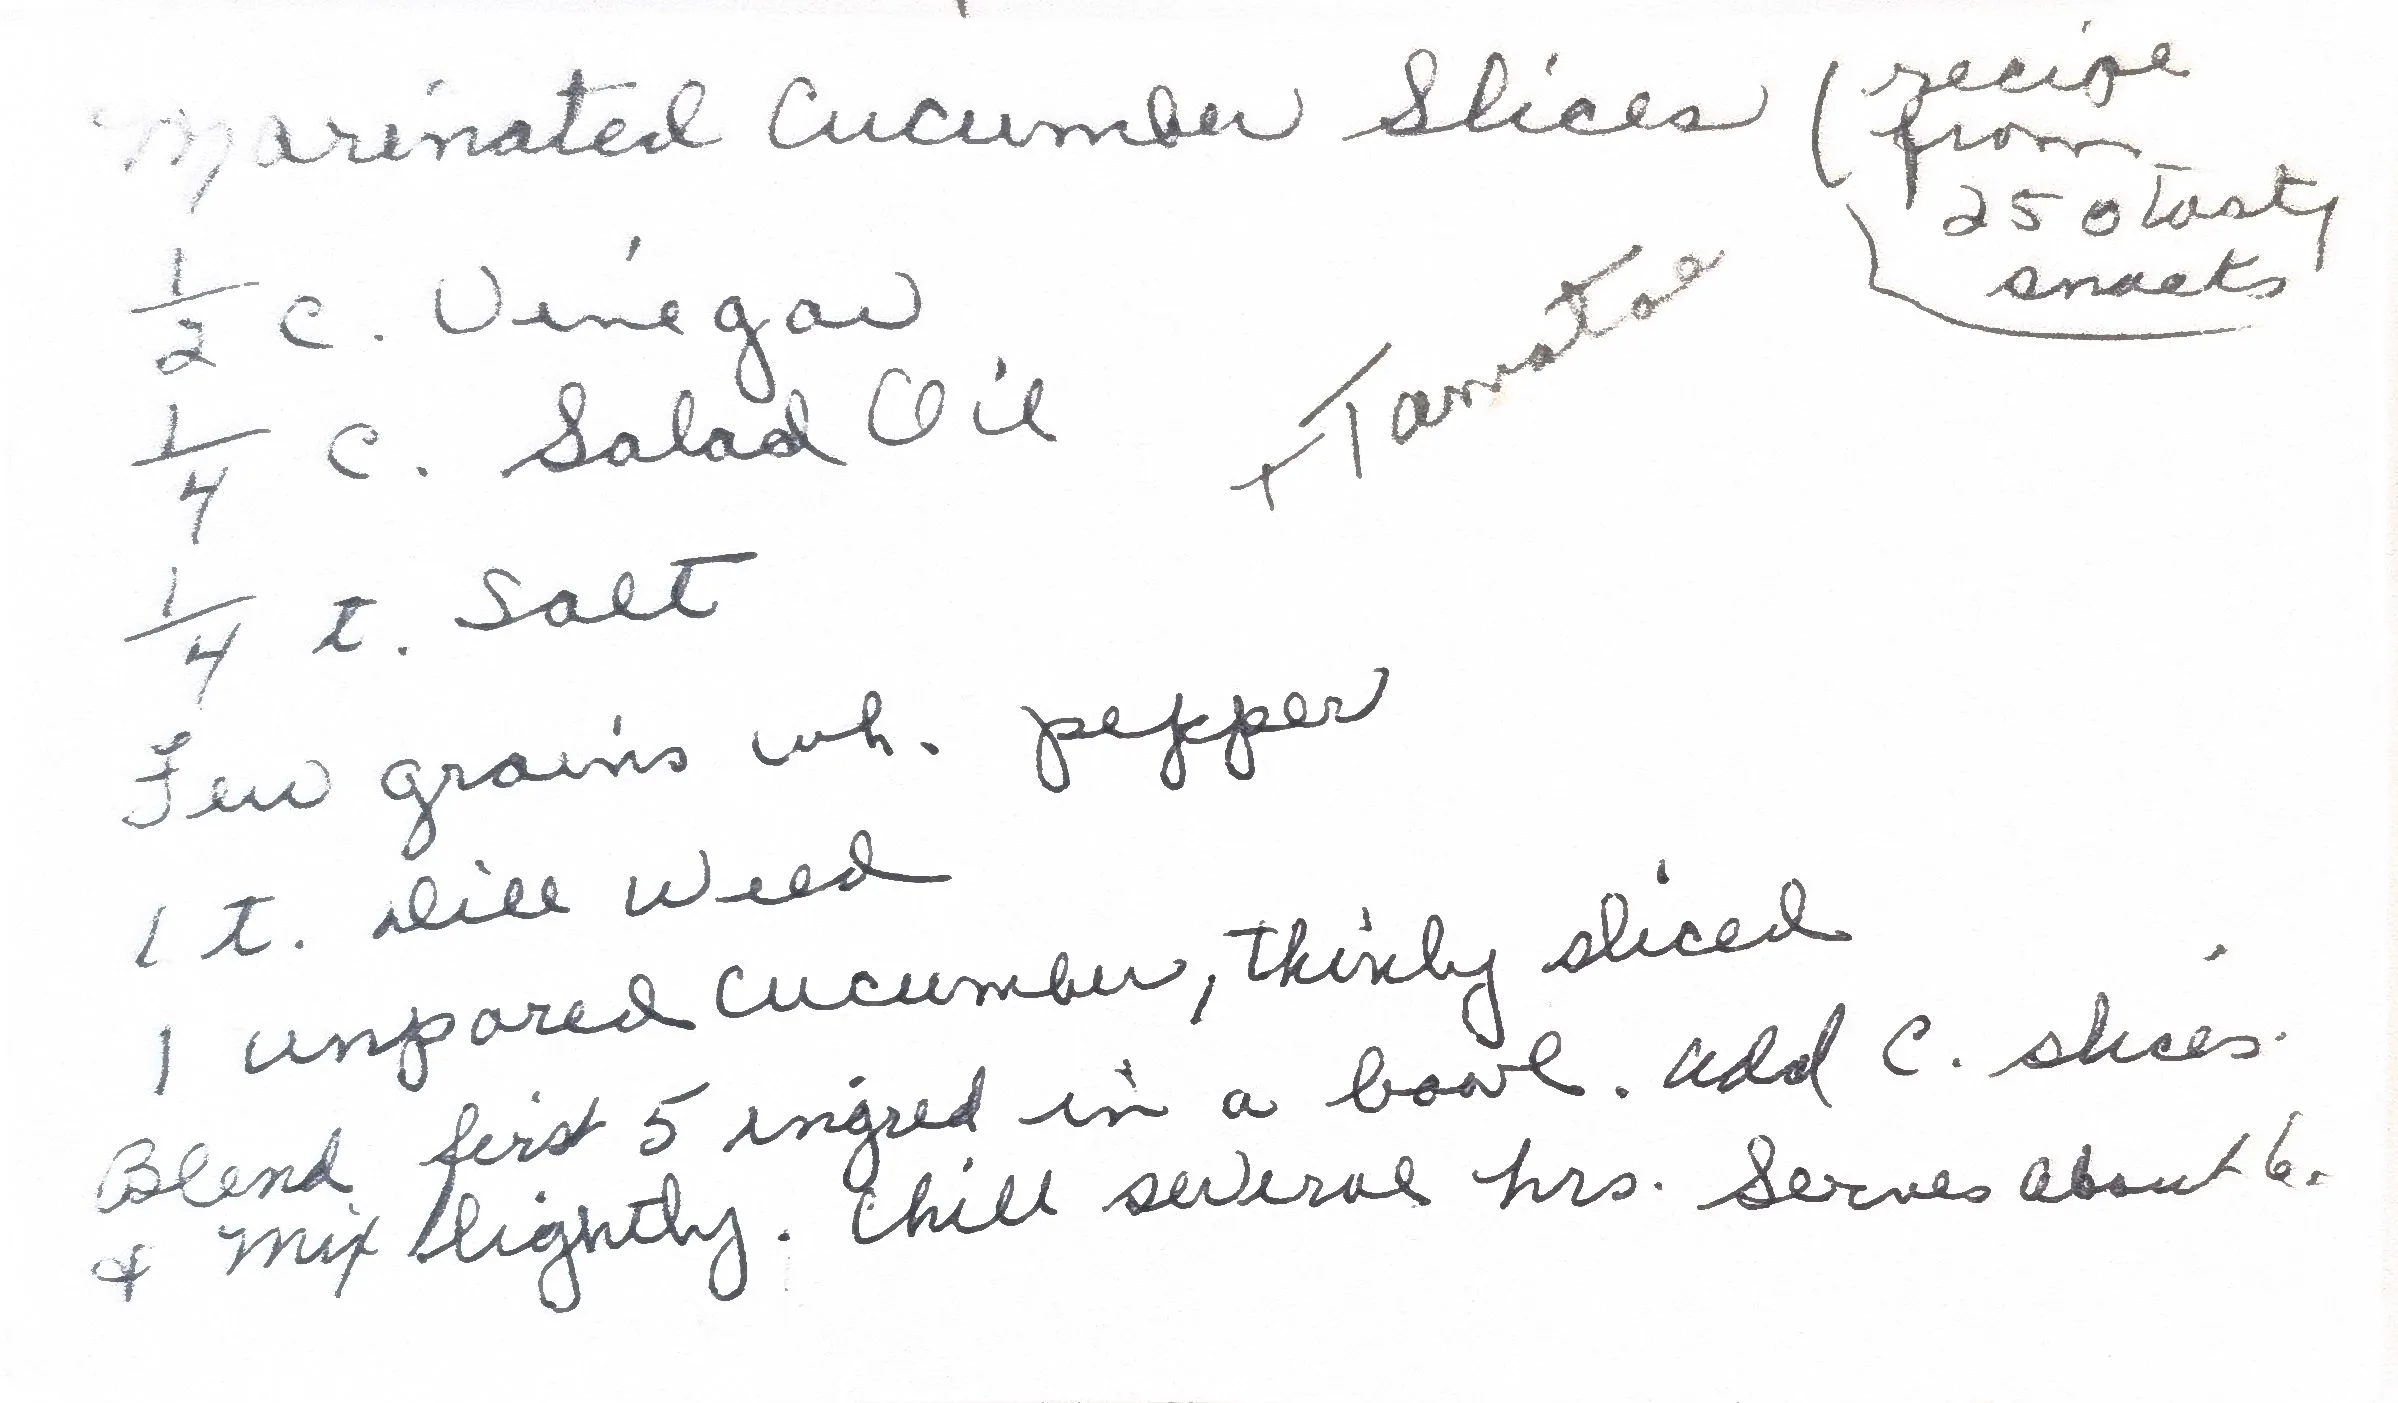 Marinated Cucumber Slices (recipe
from
250 Tasty
snacks
1/2 c. Vinegar
1/4 c. Salad Oil
+ Tamatoe
1/4 t. Salt
Few grains wh. pepper
1 t. Dill Weed
1 unpared cucumber, thinly sliced
Blend first 5 ingred in a bowl. add C. slices.
& Mix lightly. Chill several hrs. Serves about 6.